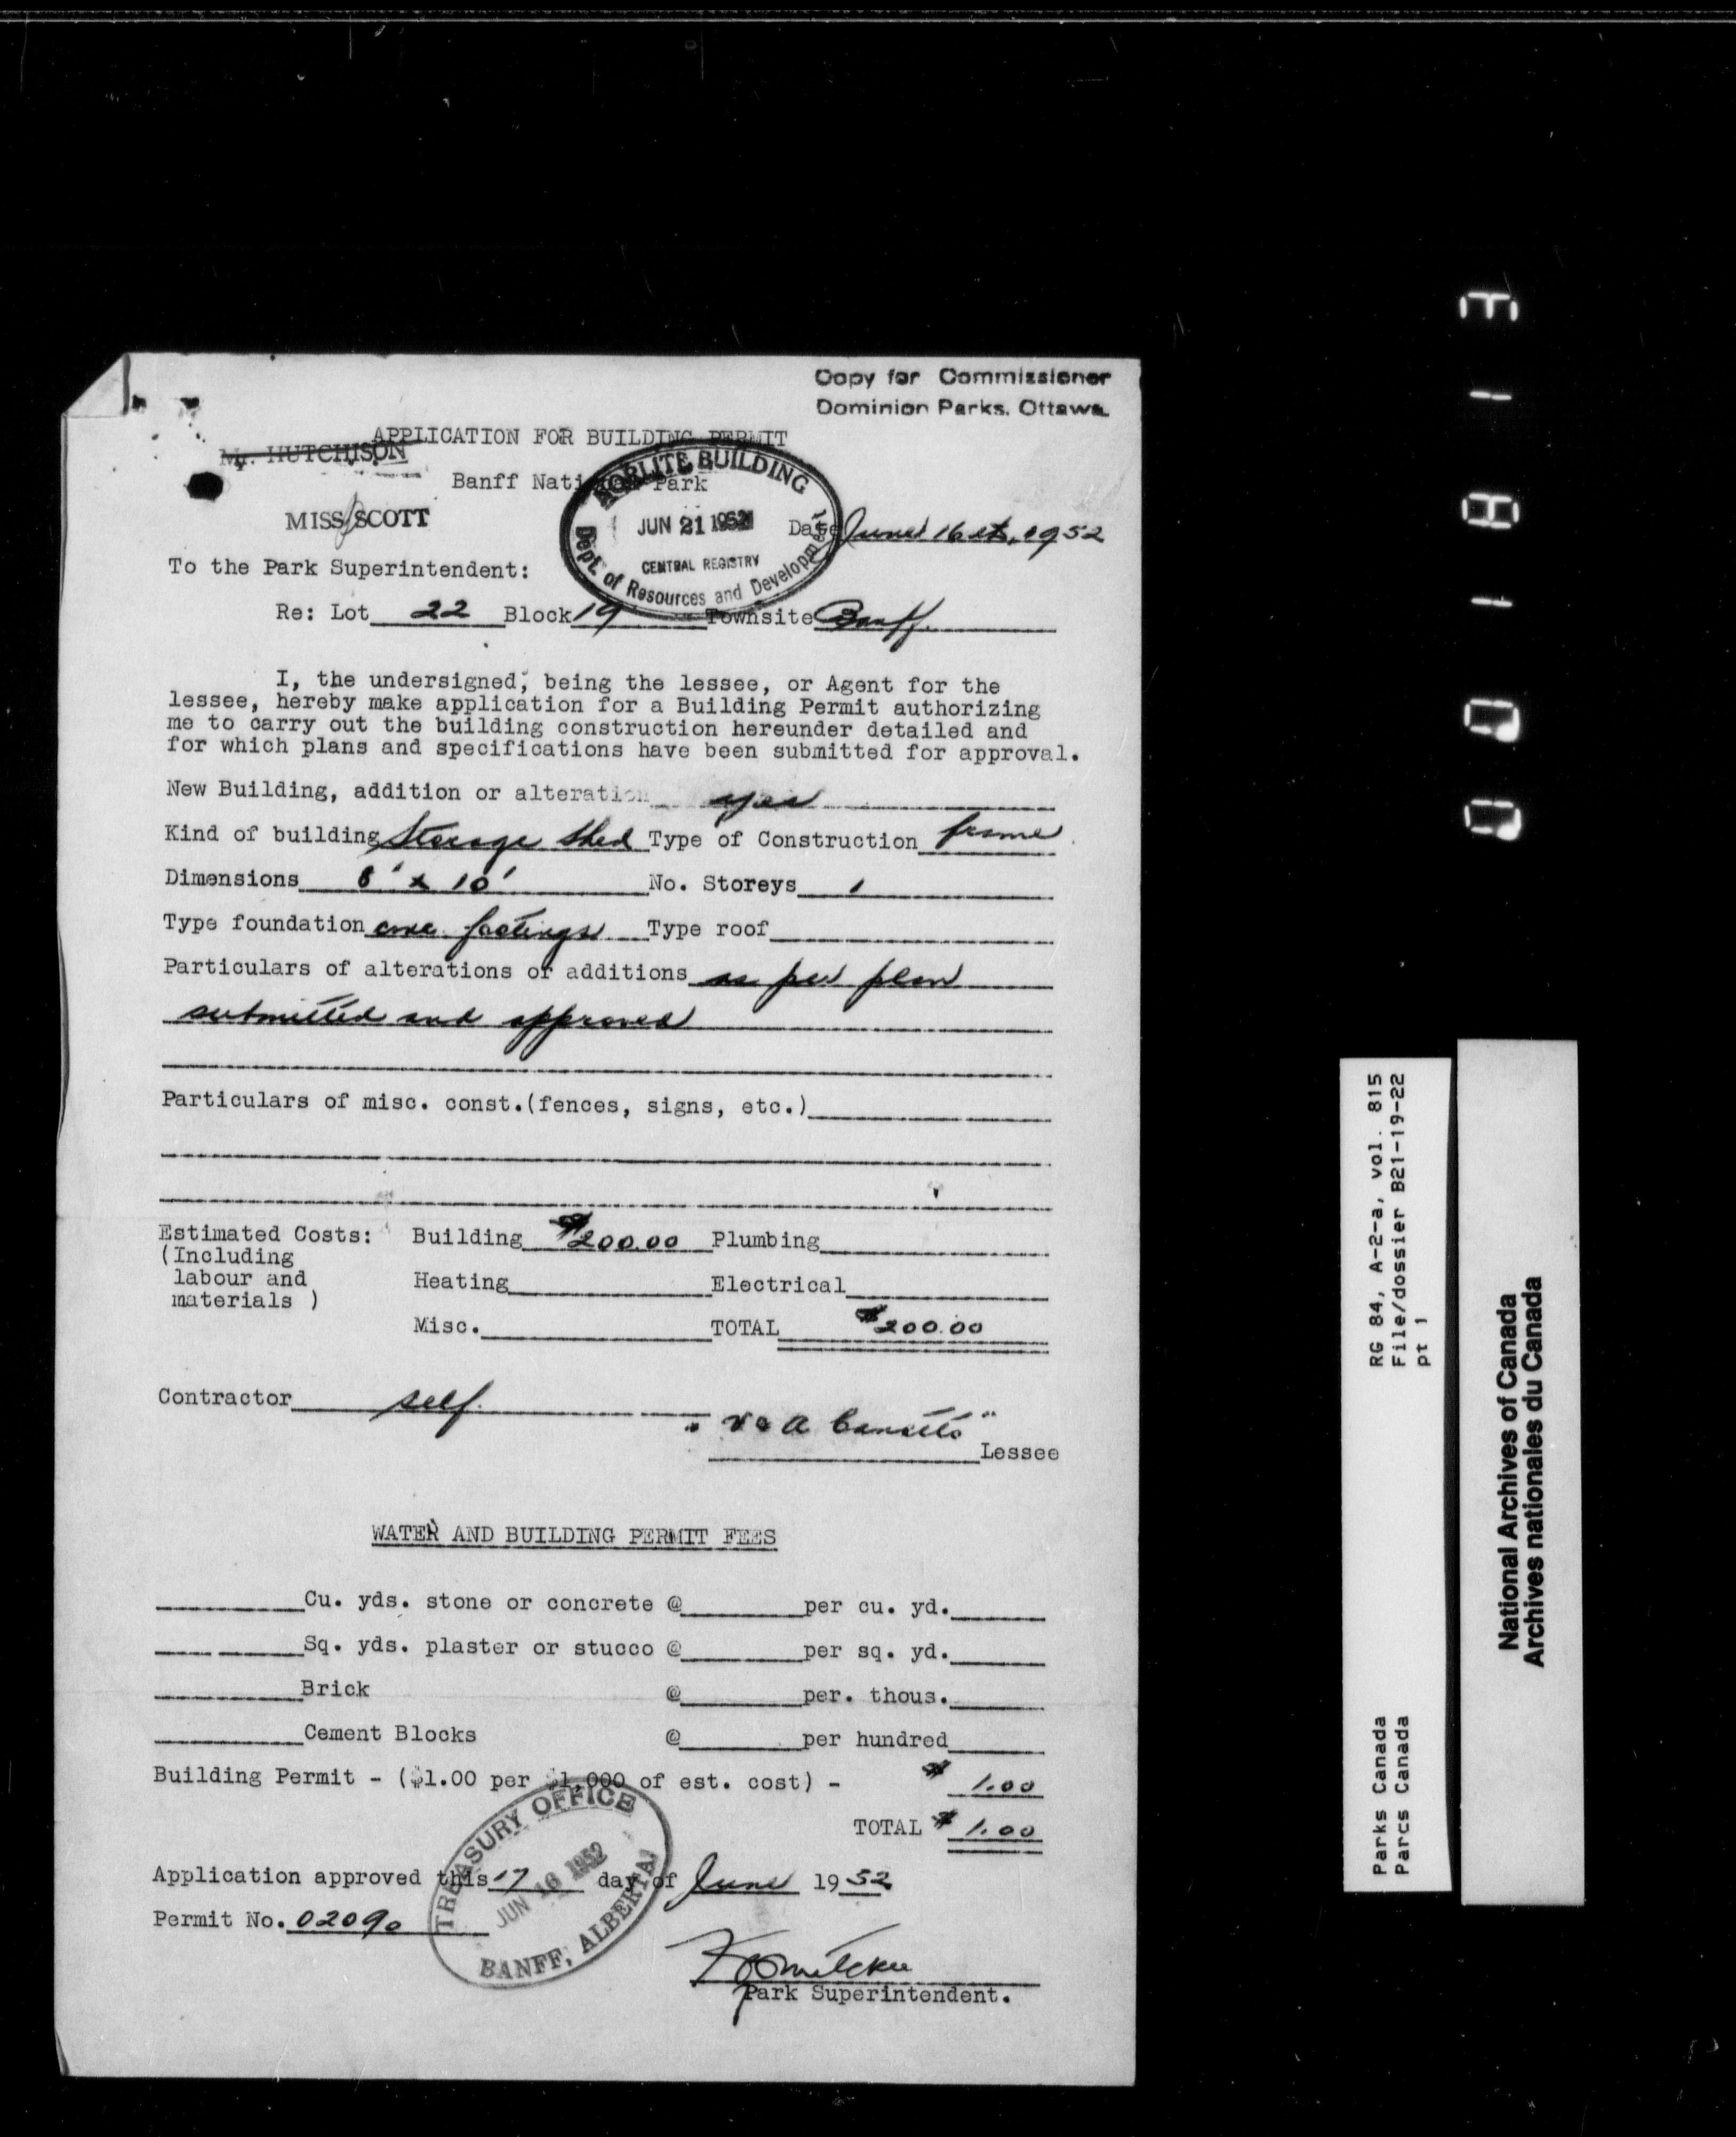 Copy for Commissioner
Dominion Parks, Ottawa.
APPLICATION FOR BUILDING PERMIT
Mr. HUTCHISON
Banff National Park
MISS SCOTT
NORLITE BUILDING
JUN 21 1952
CENTRAL REGISTRY
Dept. of Resources and Development
Date June 16th, 1952
To the Park Superintendent:
Re: Lot 22 Block 19 Townsite Banff.
I, the undersigned, being the lessee, or Agent for the
lessee, hereby make application for a Building Permit authorizing
me to carry out the building construction hereunder detailed and
for which plans and specifications have been submitted for approval.
New Building, addition or alteration yes
Kind of building Storage Shed Type of Construction frame
Dimensions 8' x 10' No. Storeys 1
Type foundation conc. footings Type roof
Particulars of alterations or additions as per plan
submitted and approved
Particulars of misc. const.(fences, signs, etc.)
Estimated Costs: Building $200.00 Plumbing
(Including
labour and Heating Electrical
materials )
Misc. TOTAL $200.00
Contractor self.
Lessee
WATER AND BUILDING PERMIT FEES
Cu. yds. stone or concrete @ per cu. yd.
Sq. yds. plaster or stucco @ per sq. yd.
Brick @ per. thous.
Cement Blocks @ per hundred
Building Permit - ($1.00 per $1,000 of est. cost) - $ 1.00
TOTAL $ 1.00
TREASURY OFFICE
JUN 16 1952
BANFF, ALBERTA
Application approved this 17 day of June 1952
Permit No. 02090
Park Superintendent.
RG 84, A-2-a, vol. 815
File/dossier B21-19-22
pt 1
Parks Canada
Parcs Canada
National Archives of Canada
Archives nationales du Canada